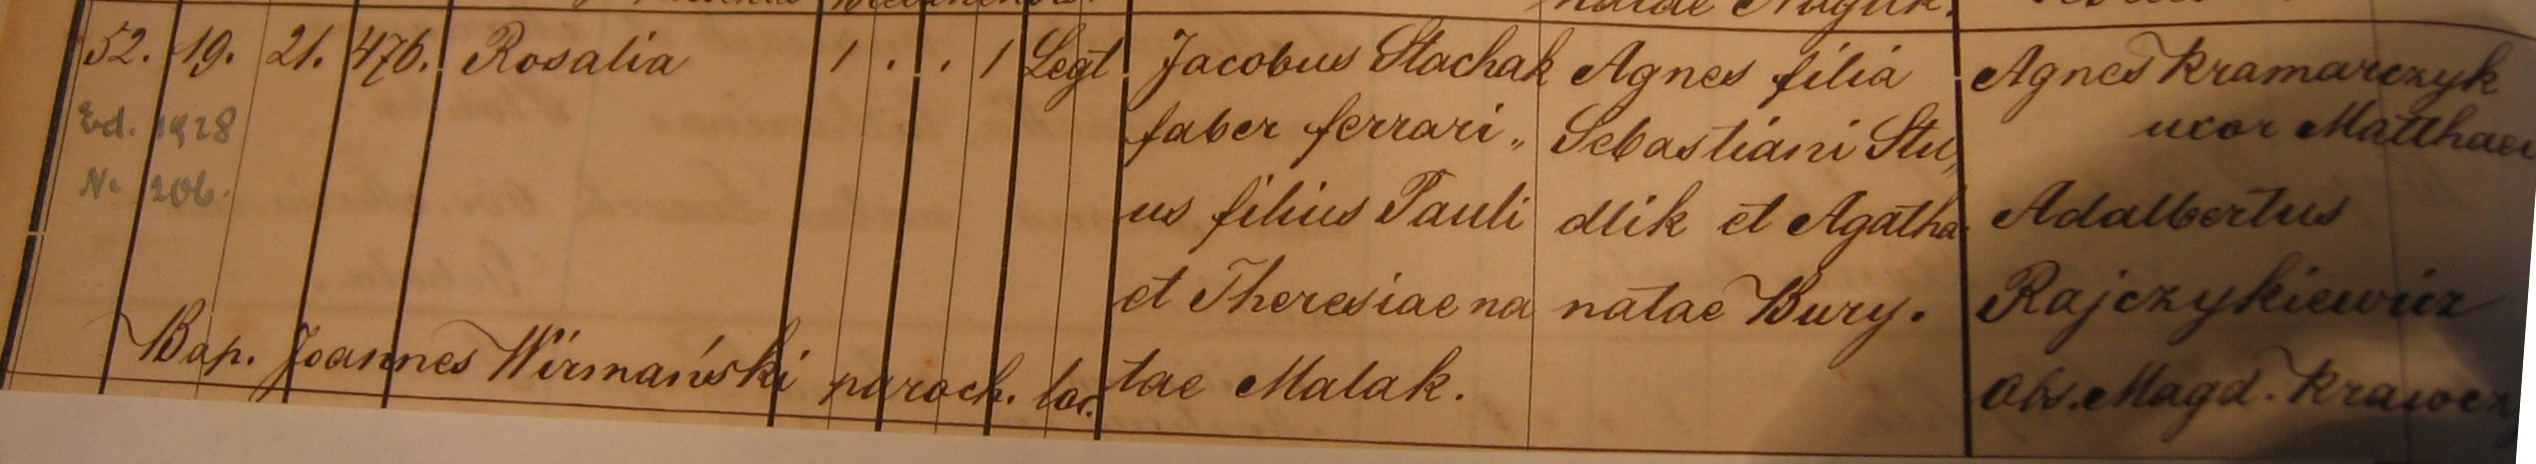 natae
52. 19. 21. 476. Rosalia 1 . . . 1 Legt. Jacobus Stachak Agnes filia Agnes Kramarczyk
faber ferrari„ Sebastiani Stu„ uxor Matthaei
Ed. 1928
No 206.
us filius Pauli dlik et Agatha Adalbertus
et Theresiae na natae Bury. Rajczykiewicz
Bap. Joannes Wirmański paroch. loc. tae Malak. Obs. Magd.